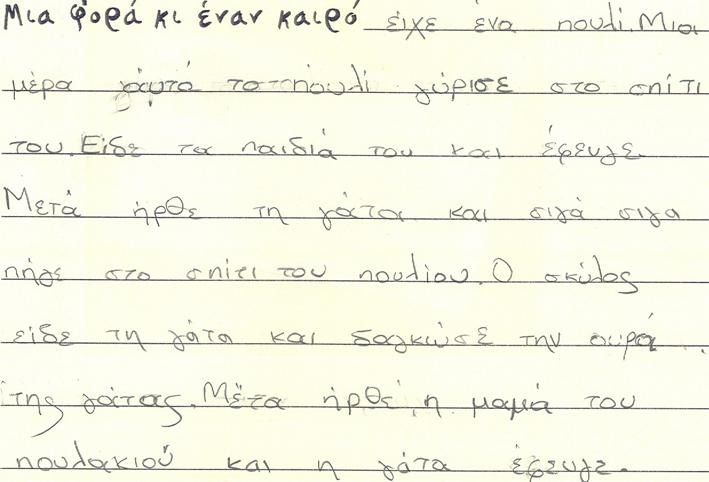 Μια φορά κι έναν καιρό είχε ένα πουλί. Μια
μέρα αυτό το πουλί γύρισε στο σπίτι
του. Είδε τα παιδιά του και έφευγε.
Μετά ήρθε τη γάτα και σιγά σιγα
πήγε στο σπίτι του πουλιου. Ο σκύλος
είδε τη γάτα και δαγκώσε την ουρά
της γάτας. Μετα ήρθε, η μαμά του
πουλακιού και η γάτα έφευγε.